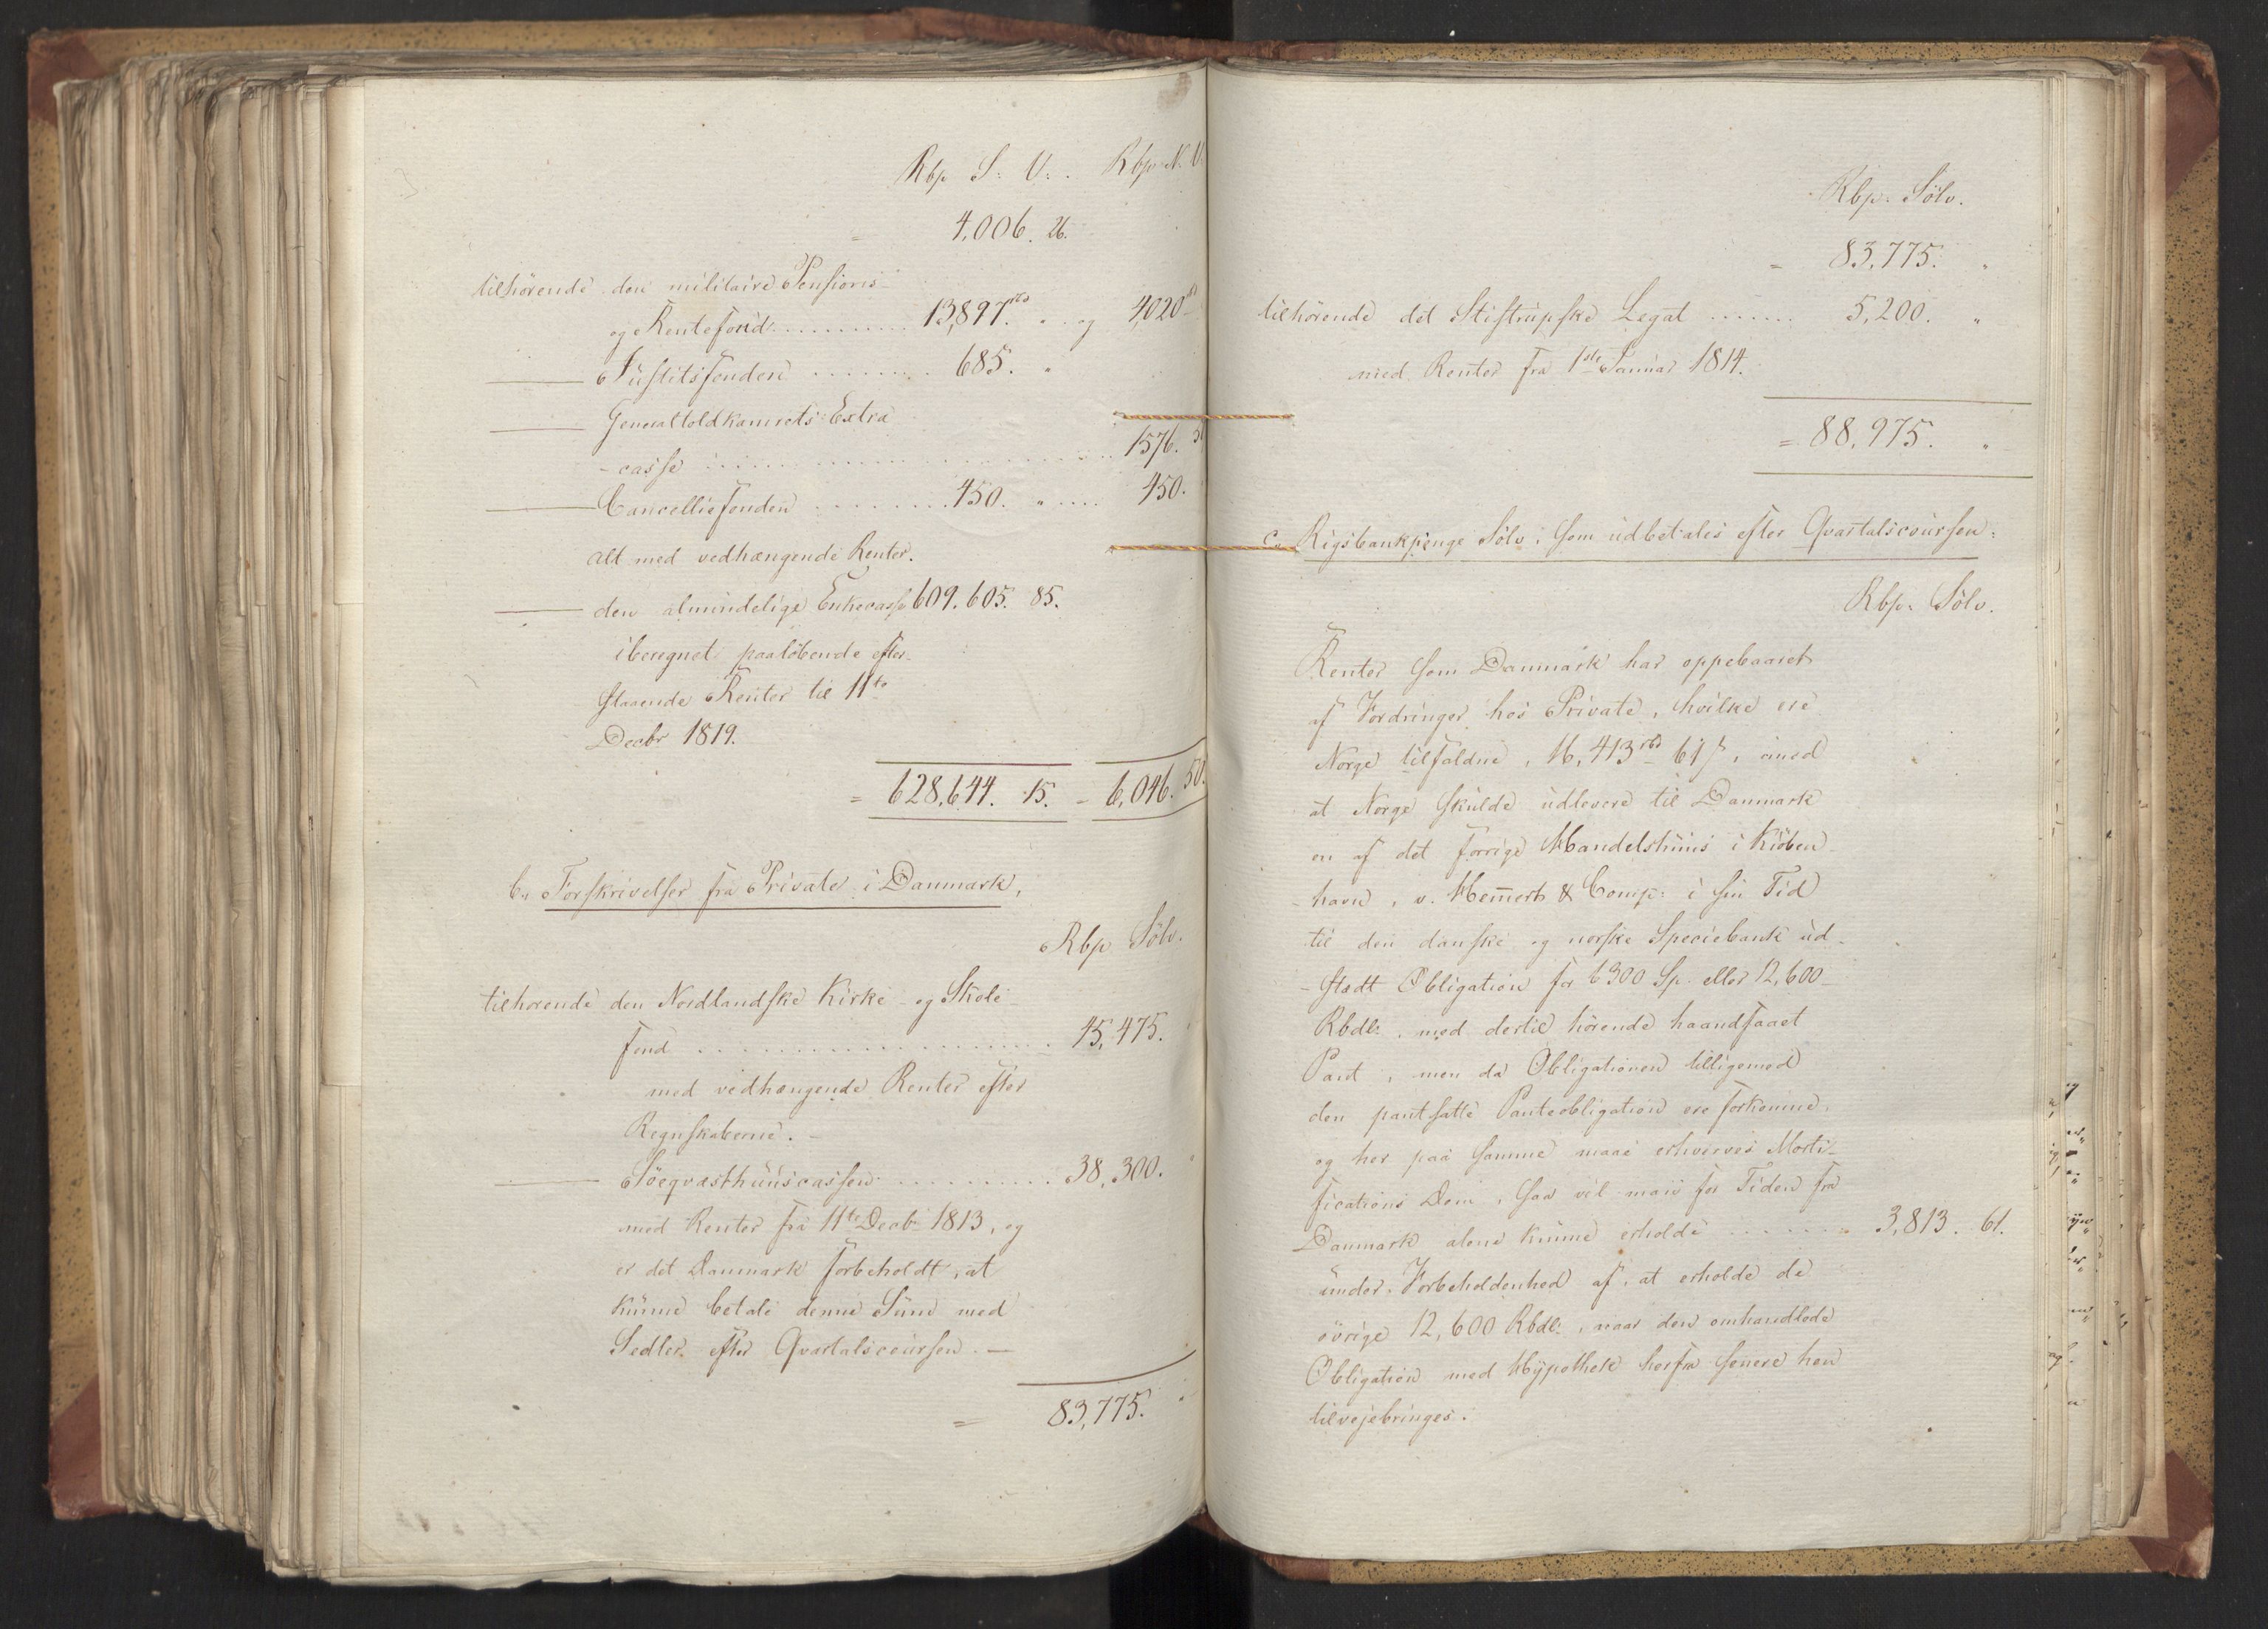 Rbp S: V: . Rbp. N. V.
= 4,006. 26.
tilhörende den militaire Pensions-
og Rentefond .......... 13,897 rbd . .. og 4,020 rbd
——— Justitsfonden ........ 685. "
——— Generaltoldkamrets Extra
-casse ........................ 1576. 50
——— Cancelliefonden ........ 450. " .... 450.
alt med vedhængende Renter.
——— den almindelige Enkecasse 609,605. 85.
iberegnet paaløbende efter-
staaende Renter til 11te
Decbr 1819.
= 628,644. 15. = 6,046. 50.
b., Forskrivelser fra Private i Danmark,
Rbp Sölv.
tilhorende den Nordlandske Kirke- og Skole-
fond .................... 45,475. "
med vedhængende Renter efter
Regnskaberne. —
——— Söeqvæsthuuscassen .......... 38,300. "
med Renter fra 11te Decbr 1813, og
er det Danmark forbeholdt, at
kunne betale denne Sum med
Sedler efter Qvartalscoursen. —
= 83,775. "
Rbp. Sölv.
= 83,775. "
tilhörende det Stistrupske Legat ....... 5,200. "
med Renter fra 1ste Januar 1814.
= 88,975. "
c., Rigsbankpenge Sölv, som udbetales efter Qvartalscoursen:
Rbp. Sölv.
Renter som Danmark har oppebaaret
af Fordringer hos Private, hvilke ere
Norge tilfaldne, 16,413 rbd 61 s, imod
at Norge skulde udlevere til Danmark
en af det forrige Handelshuus i Kiöben-
-havn, v. Hemert & Comp: i sin Tid
til den danske og norske Speciebank ud-
-stædt Obligation for 6300 Sp. eller 12,600
Rbdlr, med dertil hörende haandfaaet
Pant, men da Obligationen tilligemed
den pantsatte Panteobligation ere forkomne,
og her paa samme maae erhverves Morti-
fications Dom, saa vil man for Tiden fra
Danmark alene kunne erholde ........ 3,813. 61.
under Forbeholdenhed af, at erholde de
övrige 12,600 Rbdlr, naar den omhandlede
Obligation med Hypothek herfra senere hen
tilvejebringes.